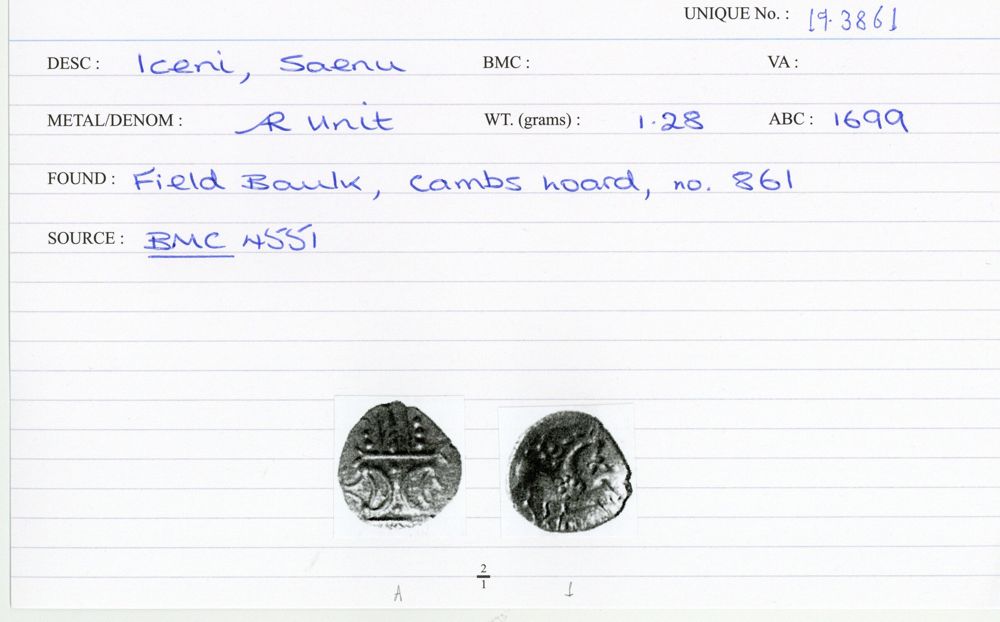 UNIQUE No. : 19.3861
DESC : Iceni, Saenu BMC : VA :
METAL/DENOM : AR Unit WT. (grams) : 1.28 ABC : 1699
FOUND : Field Baulk, Cambs hoard, no. 861
SOURCE : BMC 4551
2
1
A 1